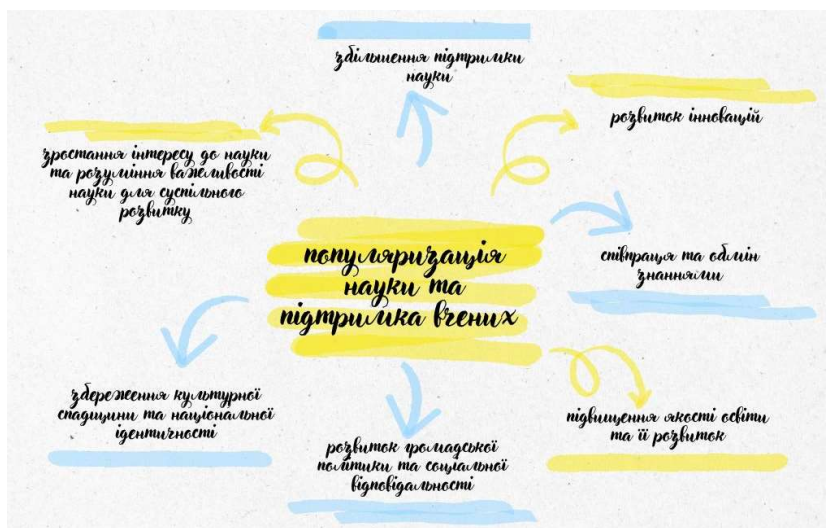 збільшення підтримки
науки
розвиток інновацій
зростання інтересу до науки
та розуміння важливості
науки для суспільного
розвитку
популяризація
науки та
підтримка вчених
співпраця та обмін
знаннями
збереження культурної
спадщини та національної
ідентичності
розвиток громадської
політики та соціальної
відповідальності
підвищення якості освіти
та її розвиток